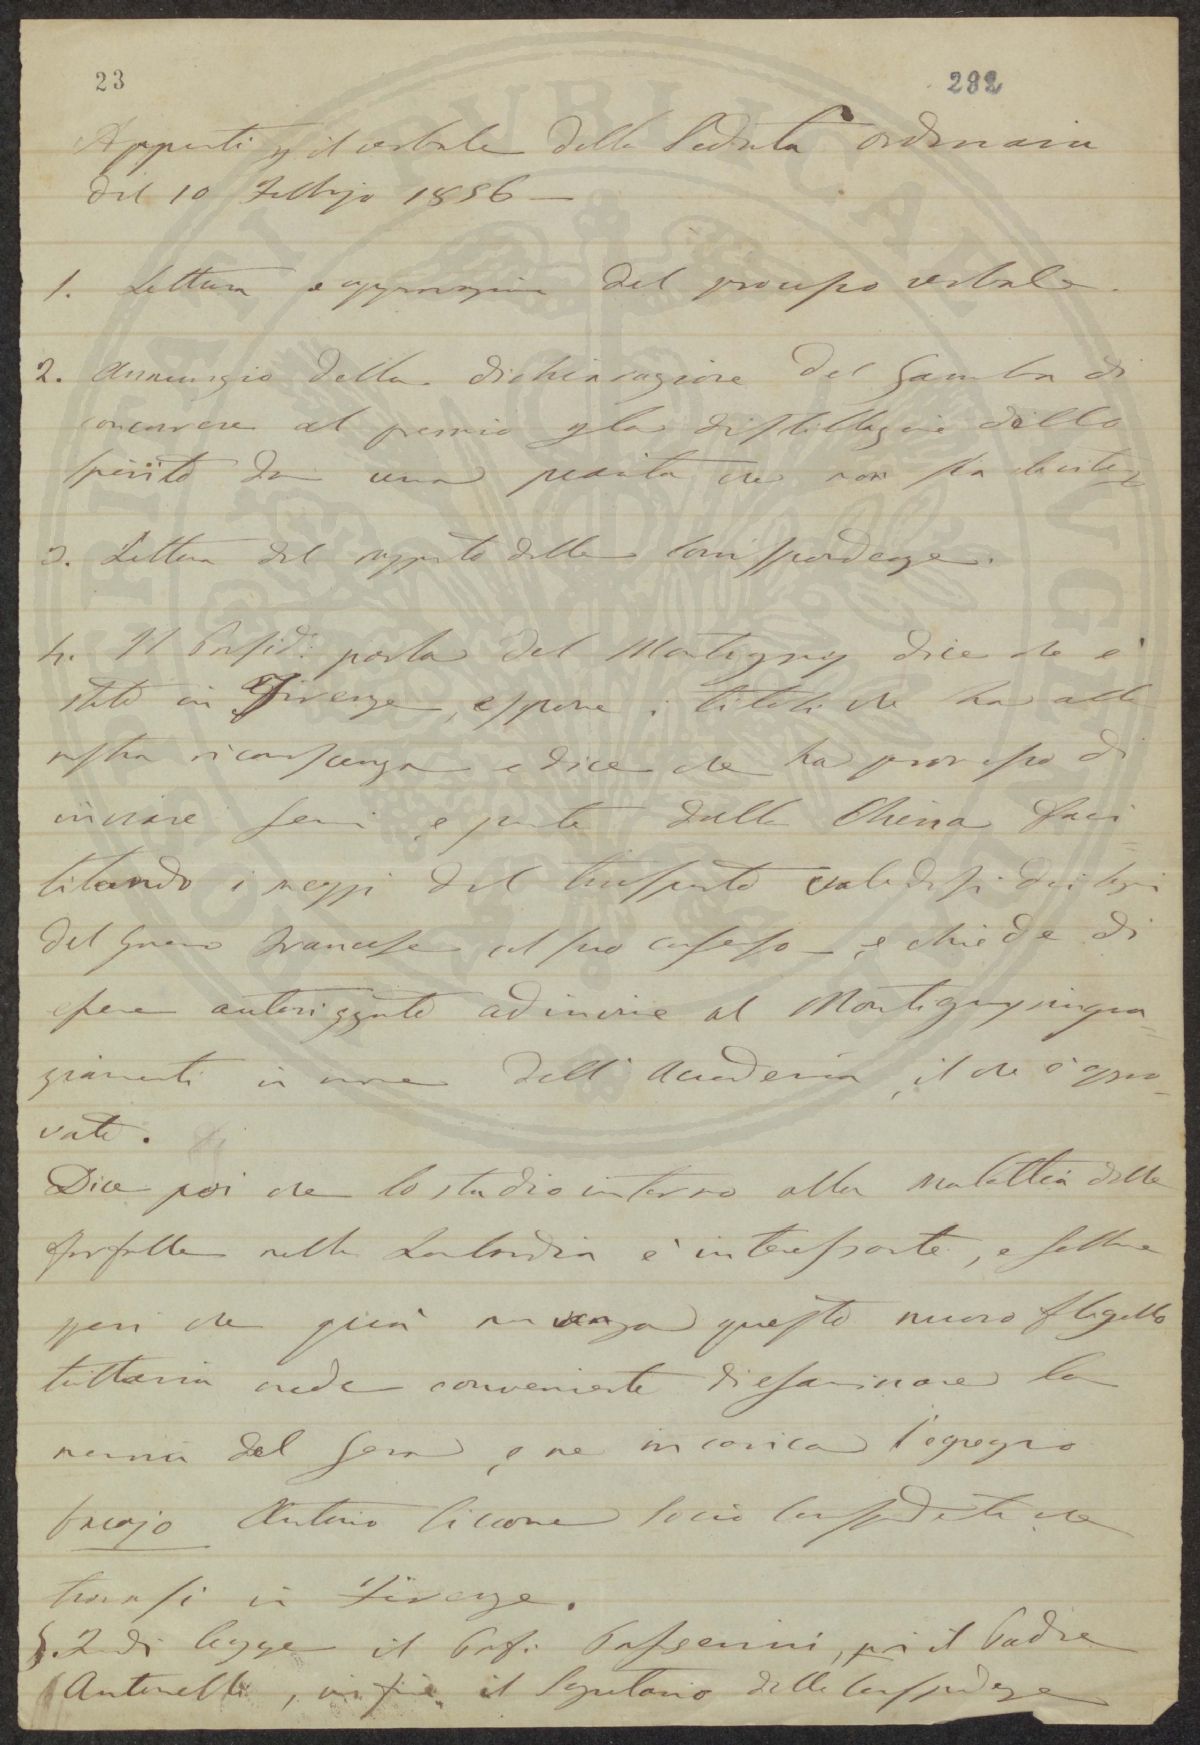 23 292
Appunti p il verbale della Seduta Ordinaria
del 10 Febbrajo 1856 —
1. Lettura e approvazione del processo verbale.
2. Annunzio della dichiarazione del Gamba di
concorrere al premio p la distillazione dello
spirito da una pianta che non sia
3. Lettura del rapporto delle Corrispondenze.
4. Il Presid: parla del Montigny dice che è
stato in Firenze, espone i titoli che ha alla
nostra riconoscenza e dice che ha promesso di
inviare semi e piante dalla China faci
litando i mezzi del trasporto
del Francese e chiede di
essere autorizzato ad inviare al Montigny ringra
ziamenti in nome dell' Accademia, il che è appro
vato.
Dice poi che lo studio intorno alla malattia delle
farfalle nella Lombardia è interessante, e sebbene
speri che quia questo nuovo flagello
tuttavia crede conveniente di esaminare la
del seme, e ne incarica l'egregio
bacajo Antonio Ciccone Socio Corrispondente che
trovasi in Firenze.
5. Indi legge il Prof. Passerini, poi il Padre
Antonelli, infine il Segretario delle Corrispondenze